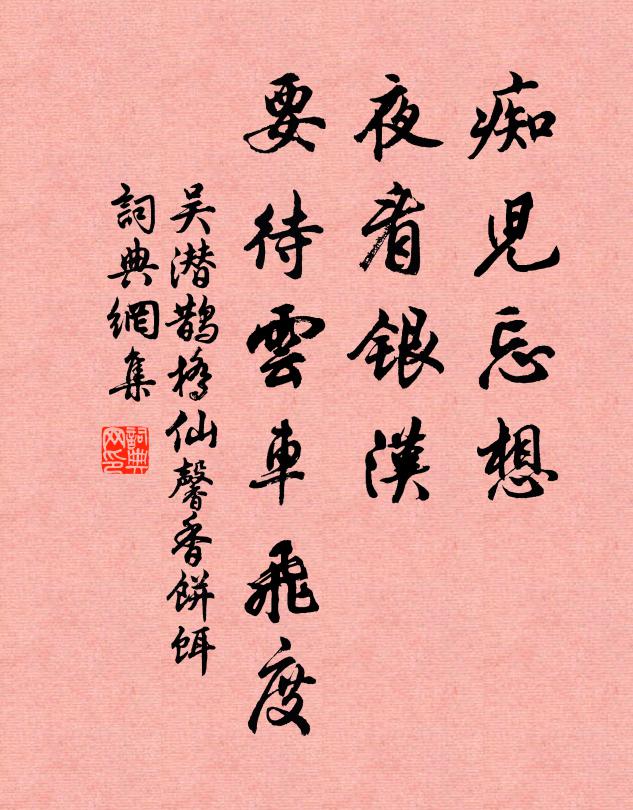 痴兒忘想
夜看銀漢
要待雲車飛度
吴潛鵲橋仙馨香餅餌
詞典網集
詞典網印